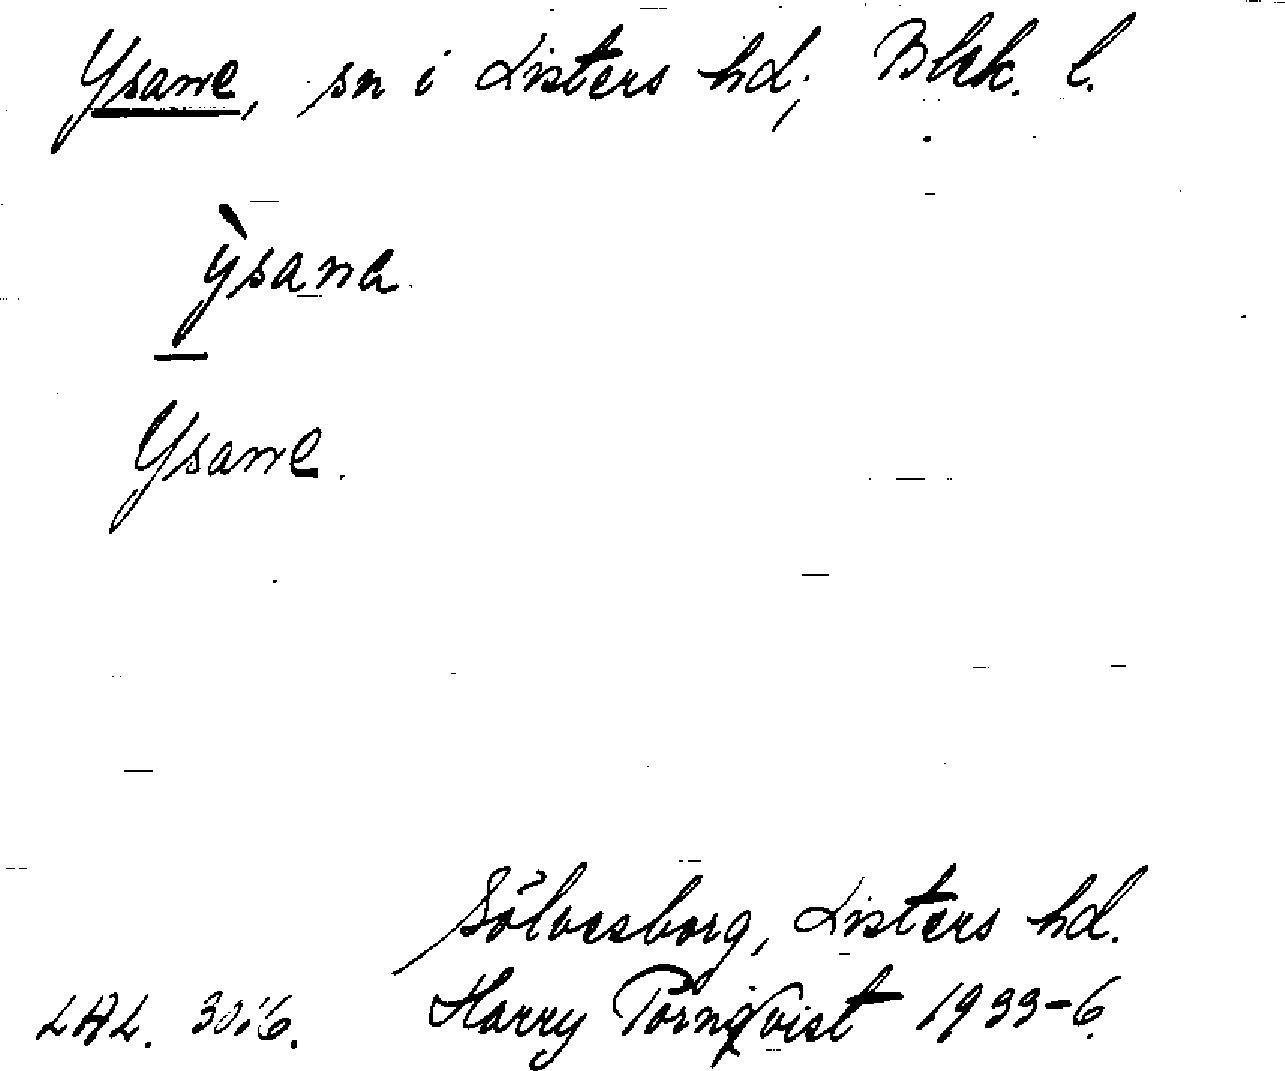 Ysane, sn i Listers hd; Blek. l.
ỳsana
Ysane.
Sölvesborg, Listers hd.
LAL. 3016. Harry Törnqvist 1933-6.